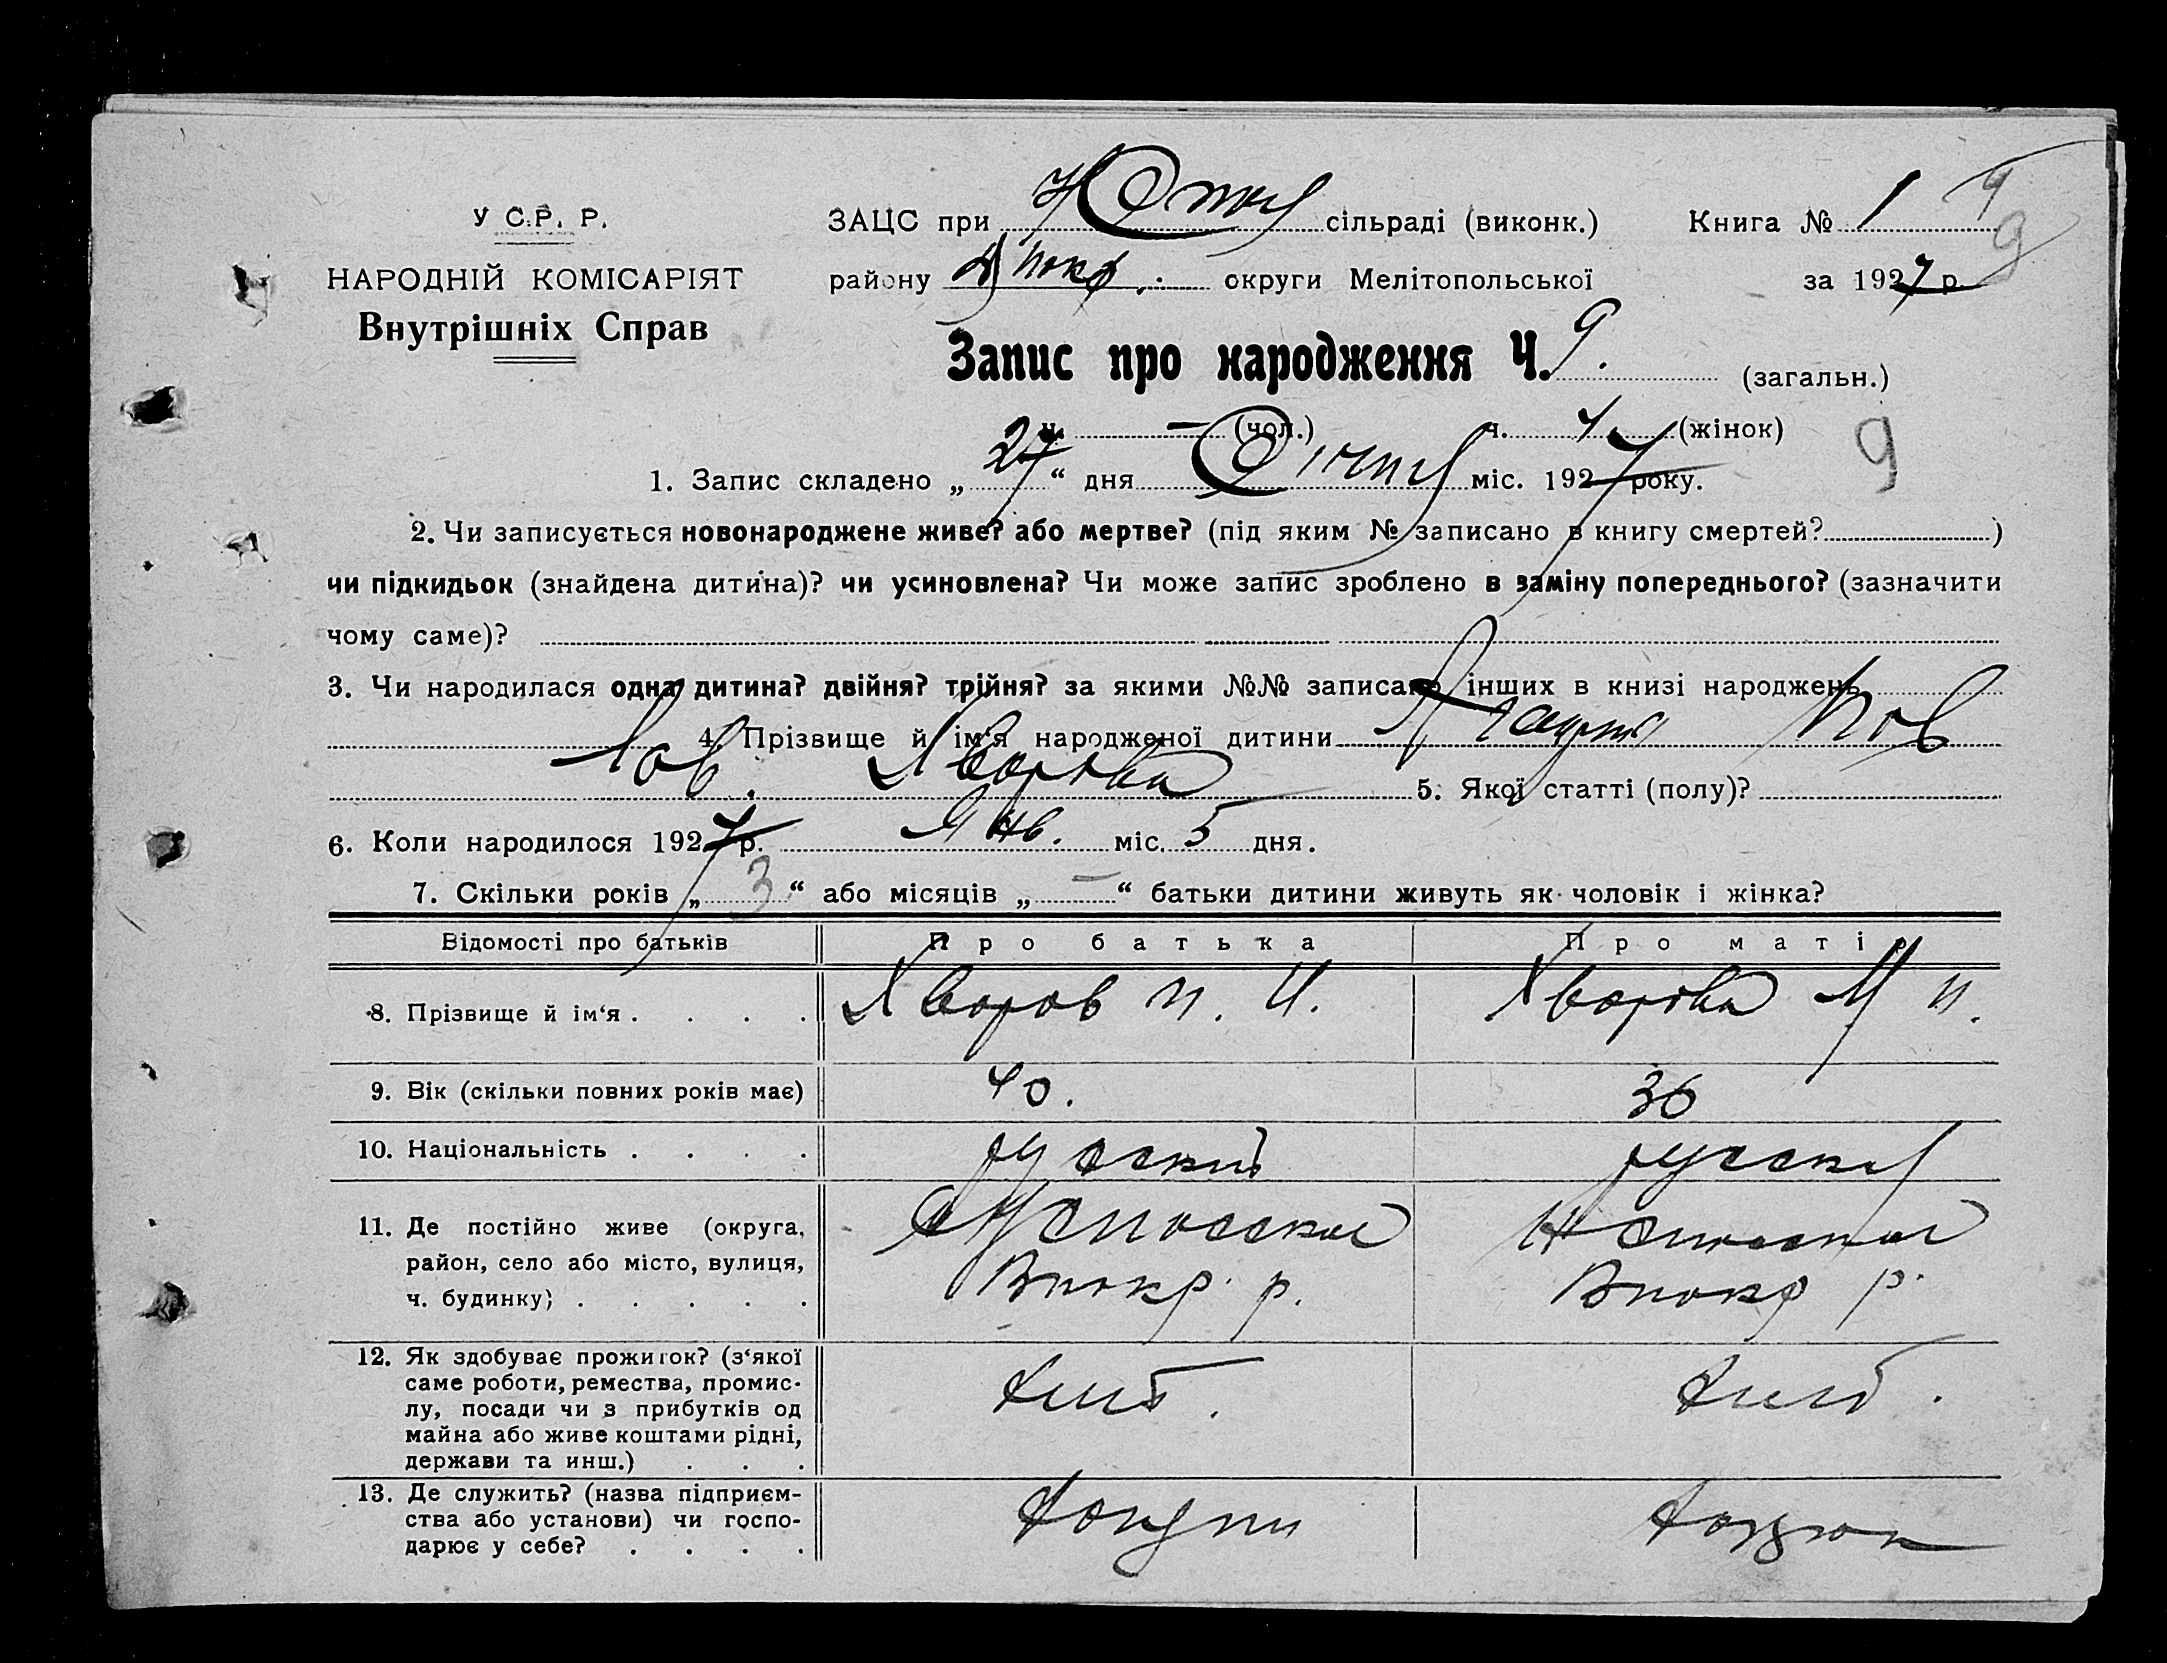 У С. Р. Р.
НАРОДНІЙ КОМІСАРІЯТ
Внутрішніх Справ
ЗАЦС при сільраді (виконк.) Книга № 1
району округи Мелітопольської за 1927 р.
9
Запис про народження Ч. 9. (загальн.)
ч. — (чол.) ч. (жінок)
9
1. Запис складено „27“ дня Січня міс. 1927 року.
2. Чи записується новонароджене живе? або мертве? (під яким № записано в книгу смертей? )
чи підкидьок (знайдена дитина)? чи усиновлена? Чи може запис зроблено в заміну попереднього? (зазначити
чому саме)?
3. Чи народилася одна дитина? двійня? трійня? за якими №№ записано інших в книзі народжень
4. Прізвище й ім'я народженої дитини
Хворова 5. Якої статті (полу)?
6. Коли народилося 1927 р. Янв. міс. 5 дня.
7. Скільки років „3“ або місяців „—“ батьки дитини живуть як чоловік і жінка?
Відомості про батьків Про батька Про матір
8. Прізвище й ім'я . . . . Хворов П. И. Хворова М П.
9. Вік (скільки повних років має) 40. 36
10. Національність . . . . русский русск
11. Де постійно живе (округа,
район, село або місто, вулиця,
ч. будинку) . . . . . Впокр. р. Впокр р.
12. Як здобуває прожиток? (з'якої
саме роботи, ремества, промис-
лу, посади чи з прибутків од
майна або живе коштами рідні,
держави та инш.) . . . хліб. хліб.
13. Де служить? (назва підприєм-
ства або установи) чи госпо-
дарює у себе? . . . .